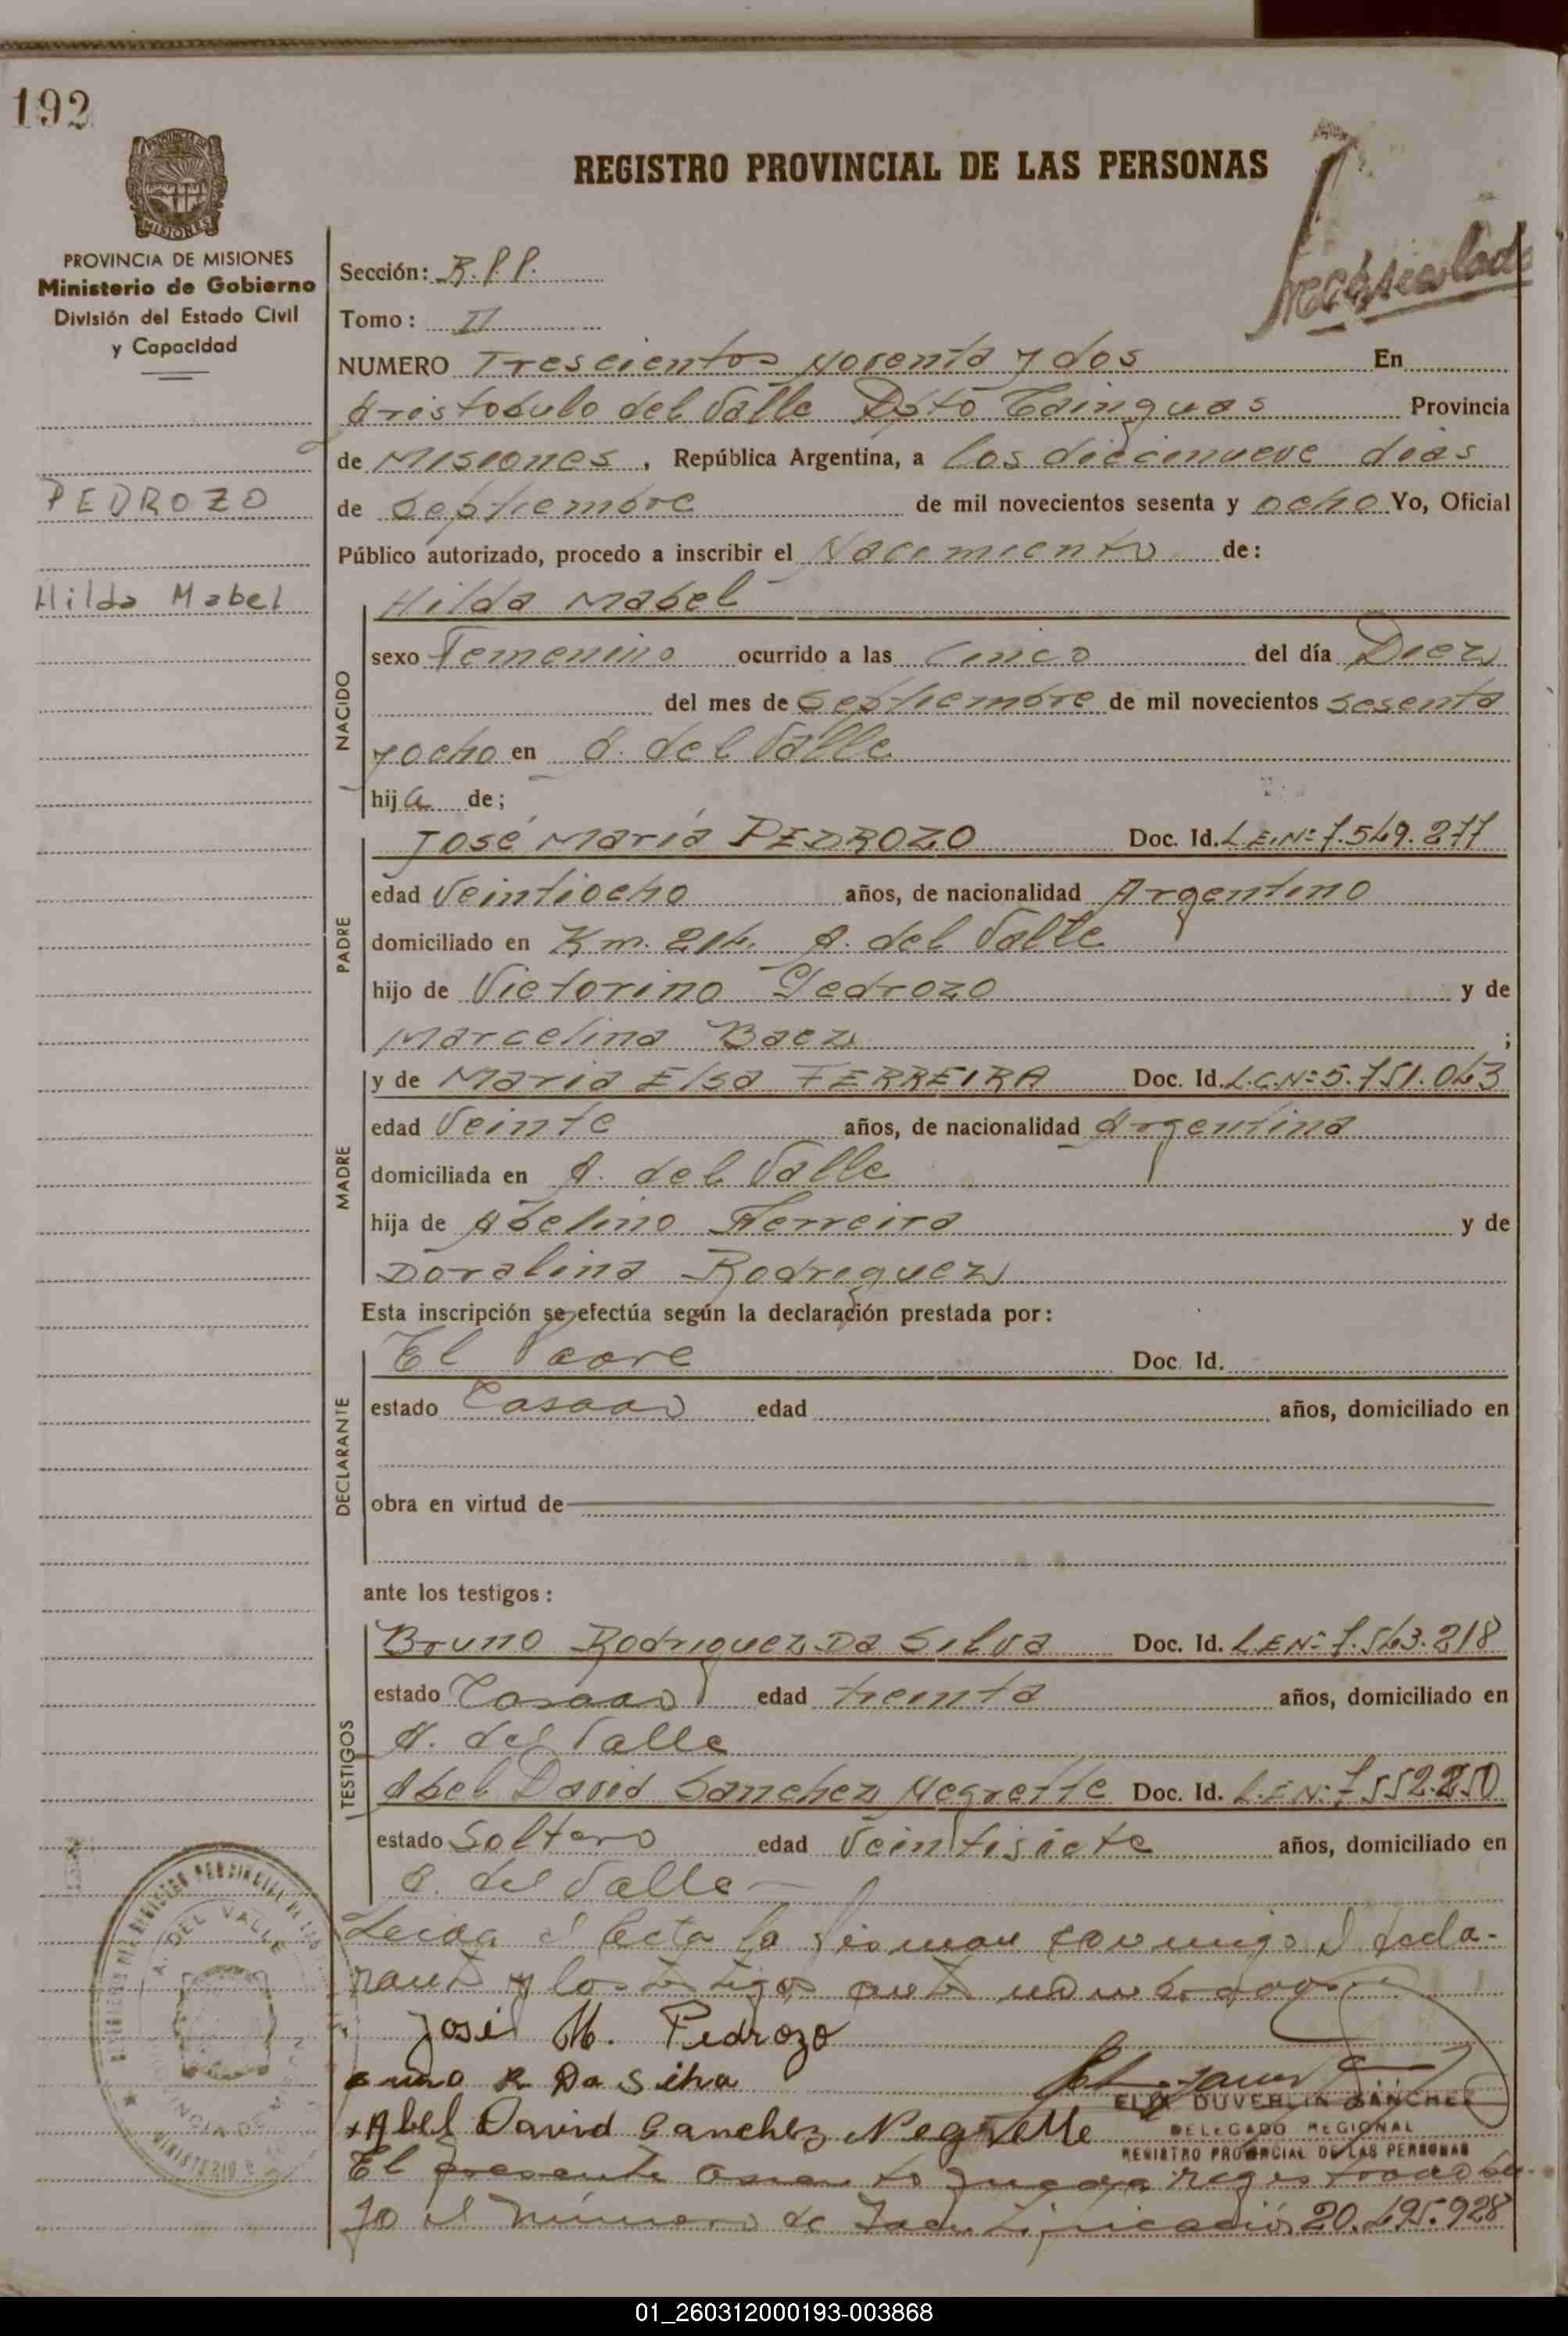 192
REGISTRO PROVINCIAL DE LAS PERSONAS
PROVINCIA DE MISIONES
Ministerio de Gobierno
División del Estado Civil
y Capacidad
PEDROZO
Hilda Mabel
Sección: R.P.P.
Tomo: II
NUMERO Trescientos Noventa y dos En
Aristobulo del Valle Dpto Cainguas Provincia
de Misiones, República Argentina, a los diecinueve dias
de Septiembre de mil novecientos sesenta y ocho Yo, Oficial
Público autorizado, procedo a inscribir el Nacimiento de:
NACIDO
Hilda Mabel
sexo Femenino ocurrido a las Cinco del día Diez
del mes de Septiembre de mil novecientos sesenta
y ocho en A. del Valle
hija de;
PADRE
José María PEDROZO Doc. Id. L.E.Nº 7.549.277
edad Veintiocho años, de nacionalidad Argentino
domiciliado en Km. 214. A. del Valle
hijo de Victorino Pedrozo y de
Marcelina Baez ;
MADRE
y de Maria Elsa FERREIRA Doc. Id. L.C.Nº 5.751.043
edad Veinte años, de nacionalidad Argentina
domiciliada en A. del Valle
hija de Abelino Ferreira y de
Doralina Rodriguez
Esta inscripción se efectúa según la declaración prestada por:
DECLARANTE
El Padre Doc. Id.
estado Casado edad años, domiciliado en
obra en virtud de
ante los testigos:
TESTIGOS
Bruno Rodriguez Da Silva Doc. Id. L.E.Nº 7.543.218
estado Casado edad treinta años, domiciliado en
A. del Valle
Abel David Sanchez Negrette Doc. Id. L.E.Nº 7.552.250
estado Soltero edad Veintisiete años, domiciliado en
A. del Valle
Leida el Acta la firman conmigo el decla-
rante y los testigos ante nombrados
José M. Pedrozo
R Da Silva
Abel David Sanchez Negrette
DUVERLIN SANCHEZ
DELEGADO REGIONAL
REGISTRO PROVINCIAL DE LAS PERSONAS
El presente asiento queda registrado ba-
jo el número de Identificación 20.495.928
A. DEL VALLE
01_260312000193-003868